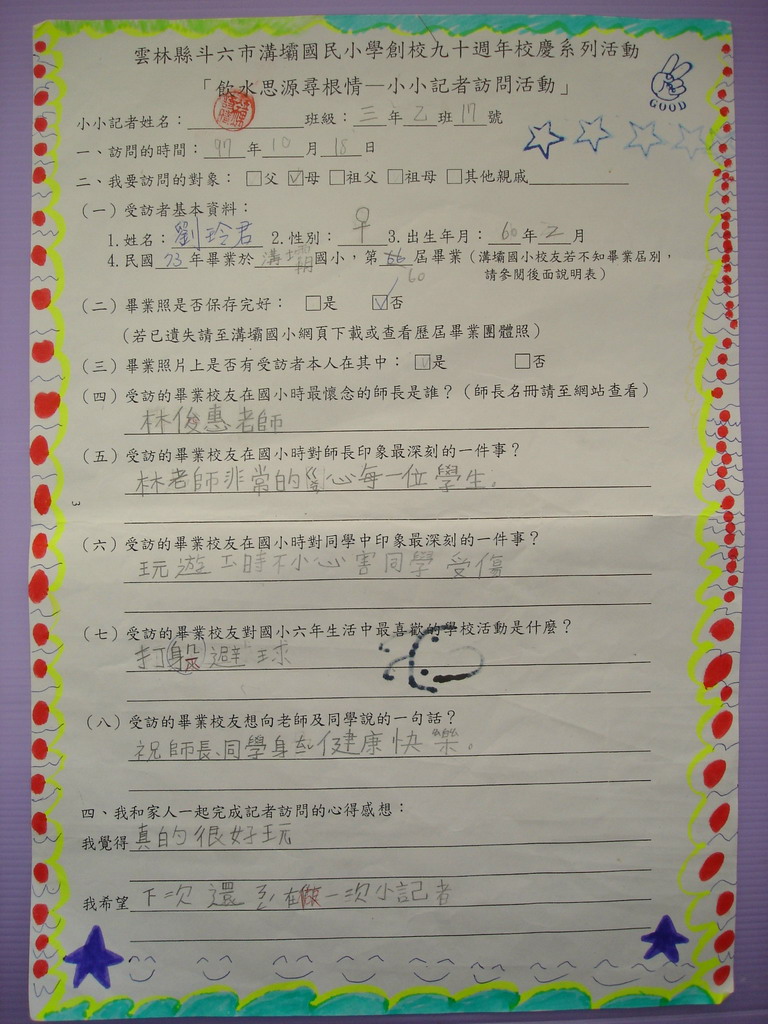 雲林縣斗六市溝壩國民小學創校九十週年校慶系列活動
「飲水思源尋根情—小小記者訪問活動」
GOOD
小小記者姓名： 班級：三年乙班17號
一、訪問的時間：97年10月18日
二、我要訪問的對象：□父 ☑母 □祖父 □祖母 □其他親戚
（一）受訪者基本資料：
1.姓名：劉玲君 2.性別：♀ 3.出生年月：60年2月
4.民國73年畢業於溝壩國小，第66屆畢業（溝壩國小校友若不知畢業屆別，
請參閱後面說明表）
60
（二）畢業照是否保存完好： □是 ☑否
（若已遺失請至溝壩國小網頁下載或查看歷屆畢業團體照）
（三）畢業照片上是否有受訪者本人在其中：☑是 □否
（四）受訪的畢業校友在國小時最懷念的師長是誰？（師長名冊請至網站查看）
林俊惠老師
（五）受訪的畢業校友在國小時對師長印象最深刻的一件事？
林老師非常的關心每一位學生。
3
（六）受訪的畢業校友在國小時對同學中印象最深刻的一件事？
玩遊 時不小心害同學受傷
（七）受訪的畢業校友對國小六年生活中最喜歡的學校活動是什麼？
打躲避球
（八）受訪的畢業校友想向老師及同學說的一句話？
祝師長、同學身體健康快樂。
四、我和家人一起完成記者訪問的心得感想：
我覺得真的很好玩
我希望下次還 在做一次小記者